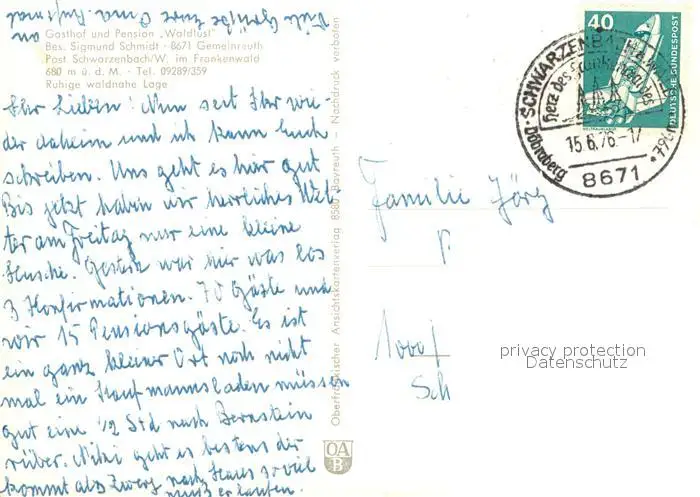 Viele Grüße Eure Oma.
an
Gasthof und Pension „Waldlust"
Bes. Sigmund Schmidt · 8671 Gemeinreuth
Post Schwarzenbach/W. im Frankenwald
680 m ü. d. M. · Tel. 09289/359
Ruhige waldnahe Lage
Ihr Lieben! Nun seit Ihr wie-
der daheim und ich kann Euch
schreiben. Uns geht es hier gut
Bis jetzt haben wir herrliches Wet-
ter am Freitag nur eine kleine
Husche. Gestern war hier was los
3 Konfirmationen. 70 Gäste und
wir 15 Pensionsgäste. Es ist
ein ganz kleiner Ort noch nicht
mal ein Kaufmannsladen müssen
gut eine 1/2 Std nach Bernstein
rüber. geht es bestens der
kommt als Zwerg nach Haus so viel
muß er laufen.
Oberfränkischer Ansichtskartenverlag 8580 Bayreuth — Nachdruck verboten
OA
B
40
DEUTSCHE BUNDESPOST
WELTRAUMLABOR
SCHWARZENBACH a. WALD
Herz des Frankenwaldes
15.6.76.-17
Döbraberg
796m
8671
Familie Jörg
1000
Sch
privacy protection
Datenschutz